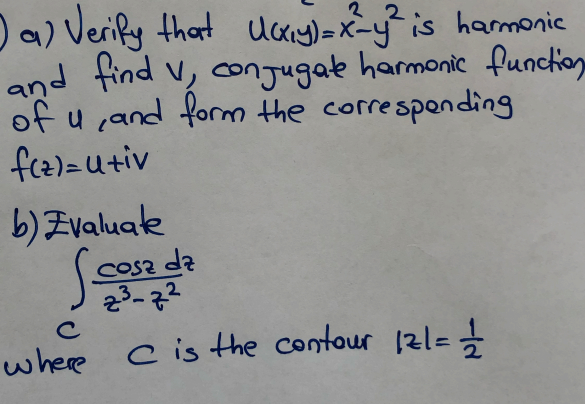 ) a) Verify that u(x,y)=x²-y² is harmonic
and find v, conjugate harmonic function
of u, and form the corresponding
f(z)=u+iv
b) Evaluate
∫ cosz dz
z³-z²
C
where C is the contour |z|= 1/2